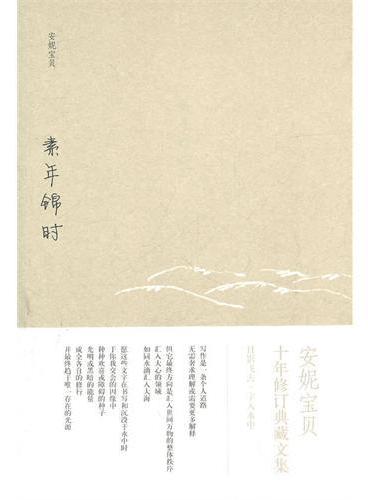 安妮宝贝
素年锦时
安妮宝贝
十年修订典藏文集
写作是一条个人道路
无需奢求理解或需要更多解释
但它最终方向是汇入世间万物的整体秩序
汇入大心的领域
如同水滴汇入大海
愿这些文字在书写和沉没于水中时
于你我交会的因缘中
种种欢喜或障碍的种子
光明或黑暗的能量
成全各自的修行
并最终趋于唯一存在的光源